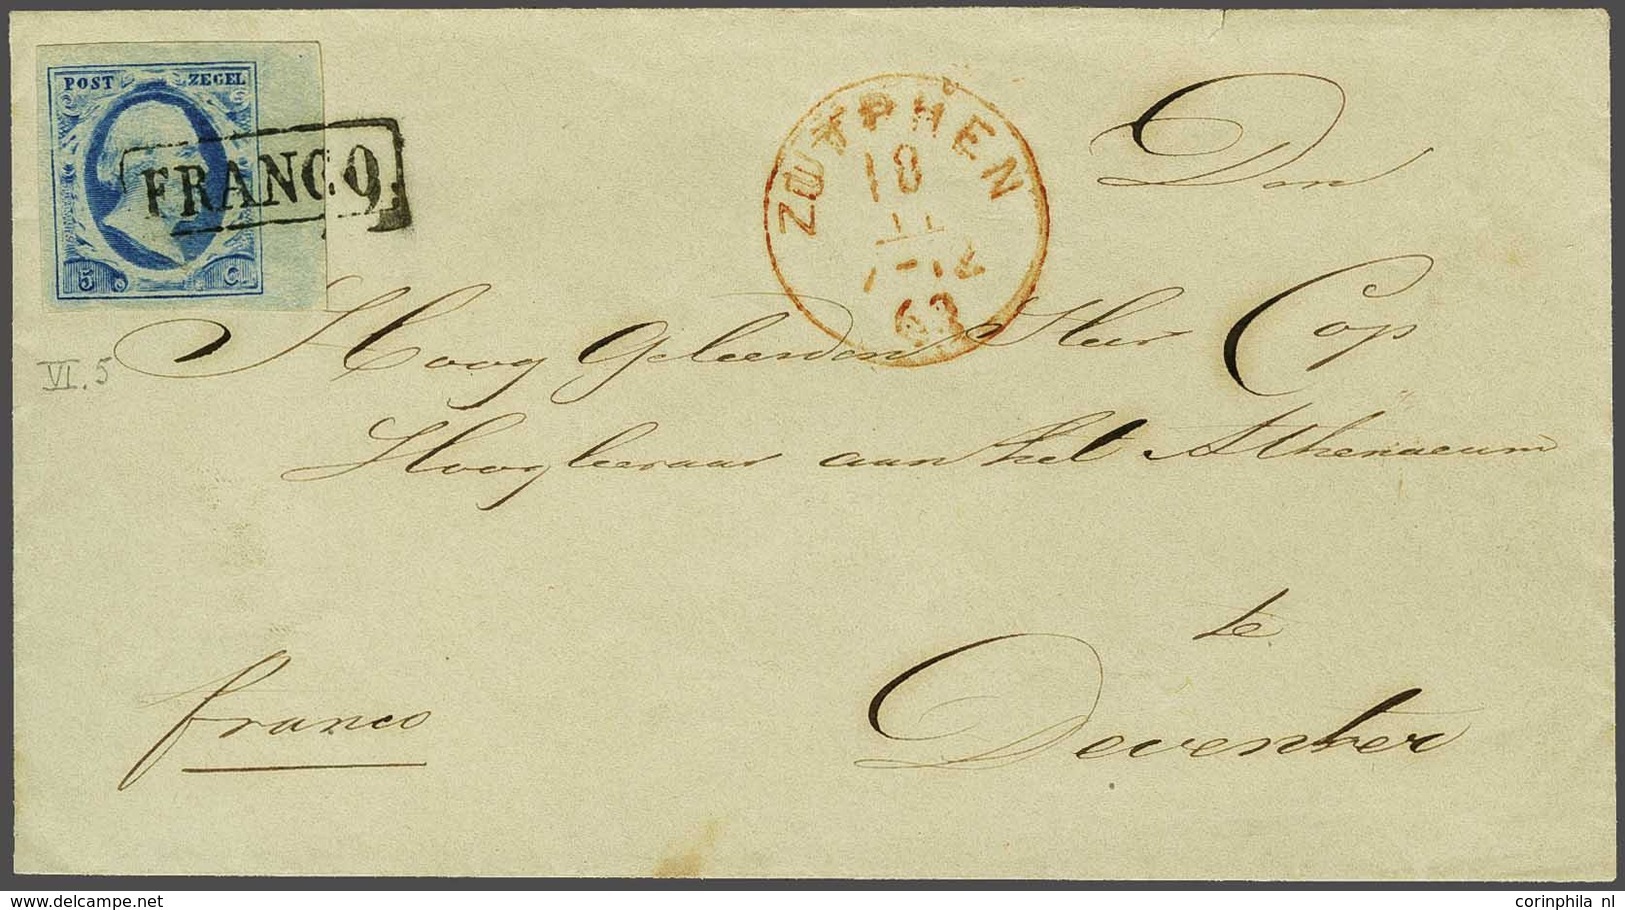 POST ZEGEL
5 C.
FRANCO
ZUTPHEN
18
11
7-12
63
Den
Hoog Geleerden Heer Cop
VI.5
Hoogleeraar aan het Athenaeum
te
Deventer
franco
corinphila nl